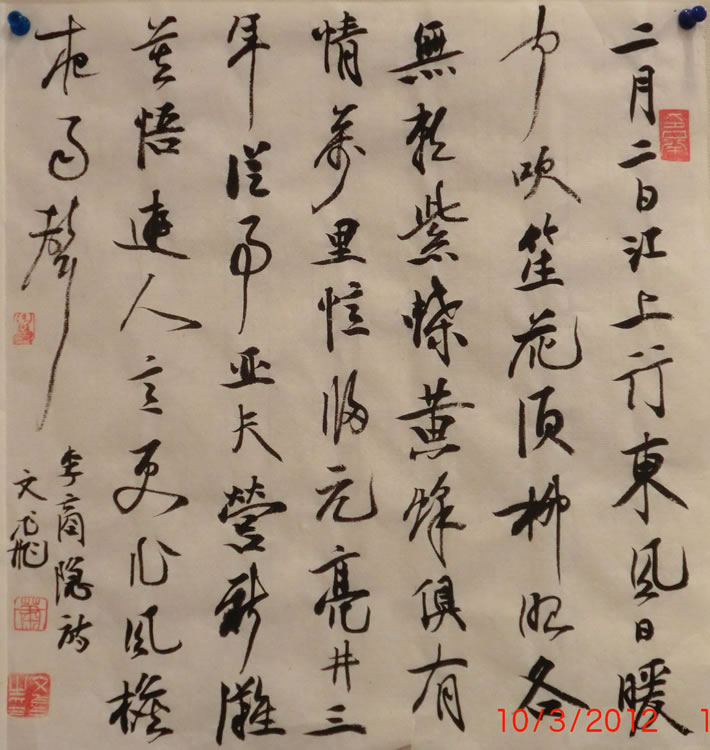 二月二日江上行東風日暖
闻吹笙花须柳眼各
無赖紫蝶黄蜂俱有
情萬里憶归元亮井三
年從事亚夫營新灘
莫悟遊人意更作風檐
夜雨聲
李商隐詩
文
10/3/2012 1